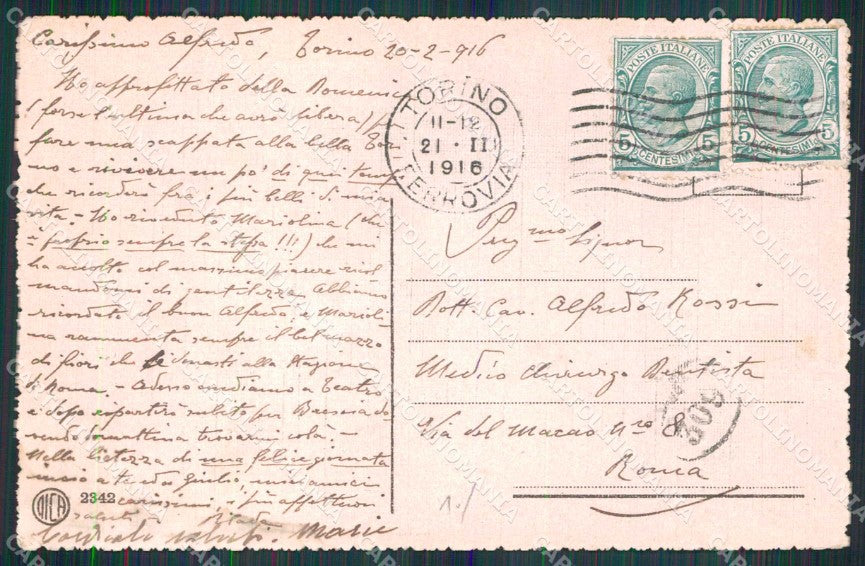 Carissimo Alfredo, Torino 20-2-916
Ho approfittato della Domenica
(forse l'ultima che avrò libera) p
fare una scappata alla bella Tori
no e rivivere un po' di quei temp
che ricorderò fra i più belli di mia
vita. - Ho riveduto Mariolina (che
è proprio sempre la stessa !!!) che mi
ha accolto col massimo piacere
di gentilezza. Abbiamo
ricordato il buon Alfredo, e Marioli
na rammenta sempre il bel mazzo
di fiori che le donasti alla Stazione
di Roma. - Adesso andiamo a Teatro
e dopo ripartirò subito per Brescia do
vendo domattina trovarmi colà. -
Nella lietezza di una felice giornata
invio a te, da Giulio,
carissimi i più affettuosi
saluti
Cordiali saluti. Marie
2342
TORINO
FERROVIA
11-12
21 · II
1916
POSTE ITALIANE
5 CENTESIMI 5
POSTE ITALIANE
5 CENTESIMI 5
Preg.mo Signor
Dott. Cav. Alfredo Rossi
Medico Chirurgo Dentista
Via del Macao nro 8
Roma
308
CARTOLINOMANIA